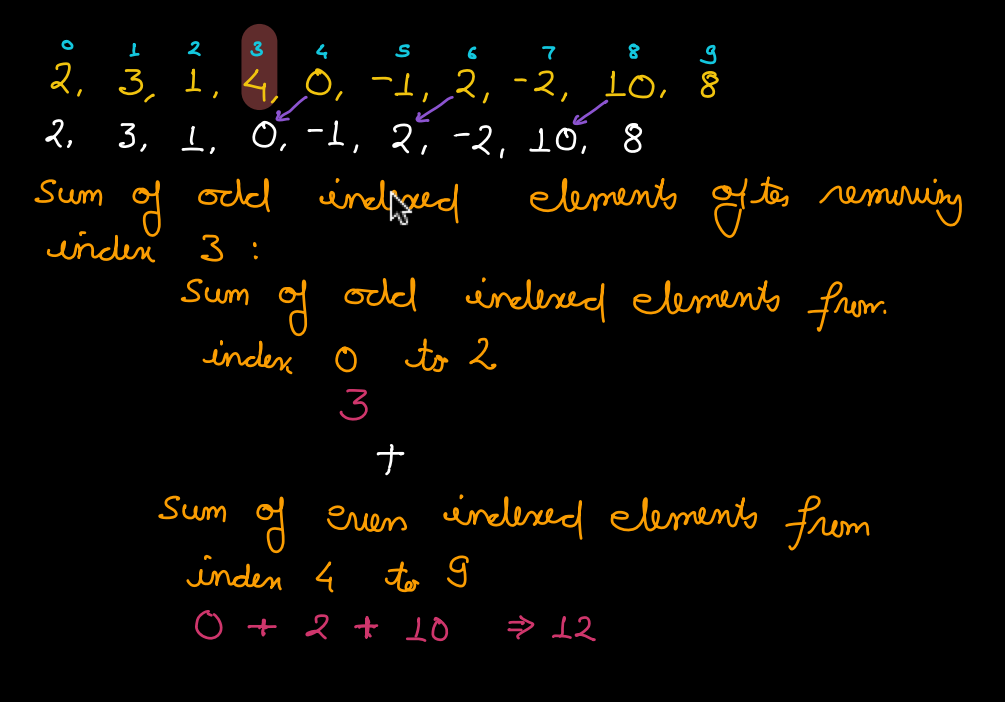 0 1 2 3 4 5 6 7 8 9
2, 3, 1, 4, 0, -1, 2, -2, 10, 8
2, 3, 1, 0, -1, 2, -2, 10, 8
Sum of odd indexed elements after removing
index 3 :
Sum of odd indexed elements from
index 0 to 2
3
+
Sum of even indexed elements from
index 4 to 9
0 + 2 + 10 ⇒ 12